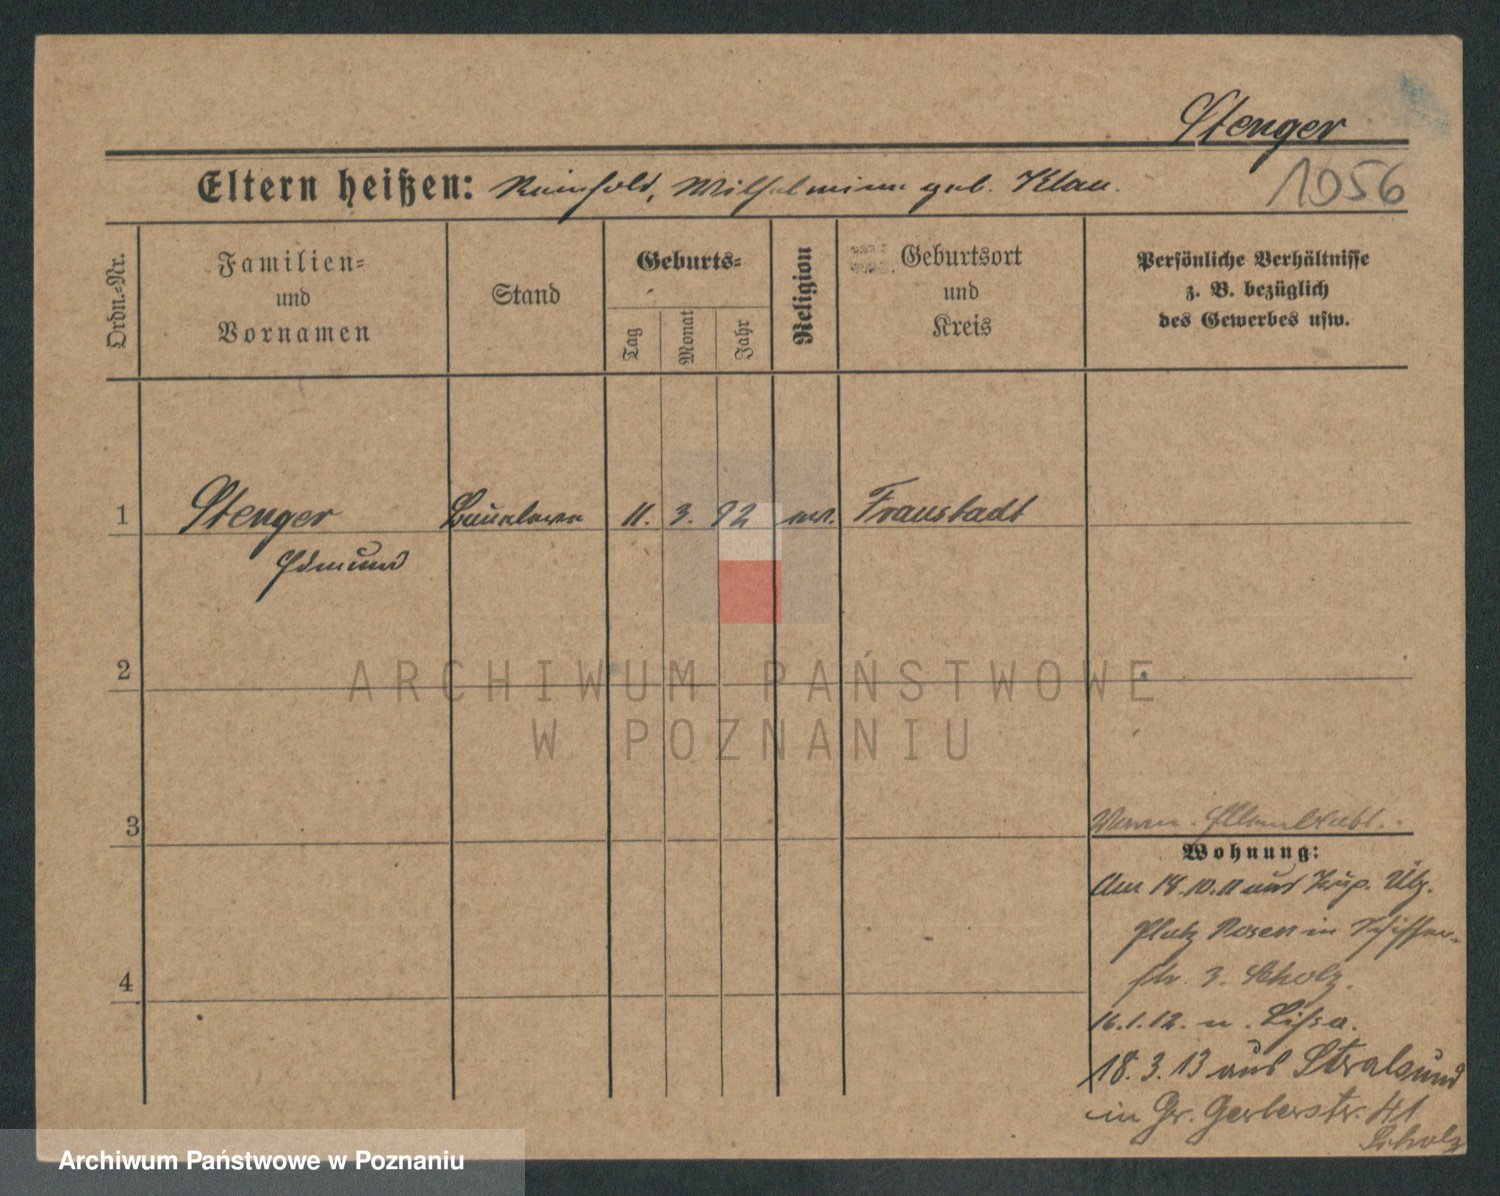 Stenger
1056
Eltern heißen: Reinhold, Wilhelmine geb. Klau.
Ordn.-Nr.
Familien-
und
Vornamen
Stand
Geburts-
Tag
Monat
Jahr
Religion
Geburtsort
und
Kreis
Persönliche Verhältnisse
z. B. bezüglich
des Gewerbes usw.
1 Stenger 11. 3. 92 Fraustadt
Edmund
2
ARCHIWUM PAŃSTWOWE
W POZNANIU
3
Wohnung:
Am 18.10.11 aus
Platz Posen in Schiffer-
str. 3. Scholz.
16.1.12. n. Lissa.
18.3.13 aus Stralsund
in Gr. Gerberstr. 41
Scholz
4
Archiwum Państwowe w Poznaniu